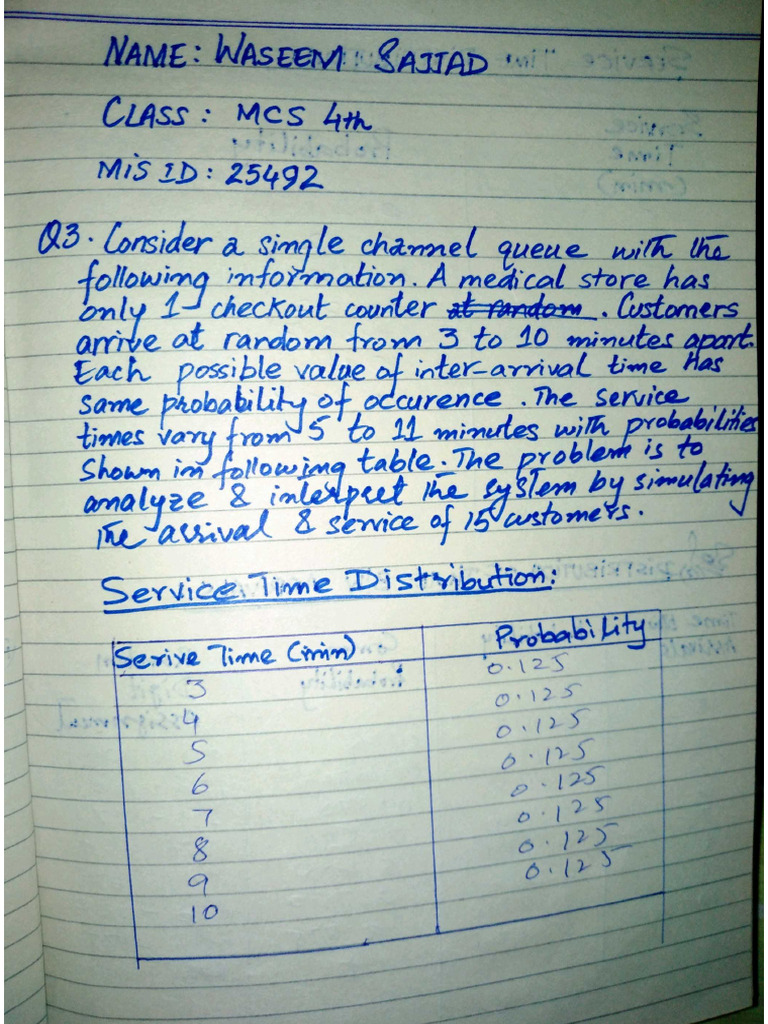 NAME: WASEEM SAJJAD
CLASS: MCS 4th
MIS ID: 25492
Q3. Consider a single channel queue with the
following information. A medical store has
only 1 checkout counter at random. Customers
arrive at random from 3 to 10 minutes apart.
Each possible value of inter-arrival time has
same probability of occurence. The service
times vary from 5 to 11 minutes with probabilities
shown in following table. The problem is to
analyze & interpret the system by simulating
the arrival & service of 15 customers.
Service Time Distribution:
Serive Time (min) Probability
3 0.125
4 0.125
5 0.125
6 0.125
7 0.125
8 0.125
9 0.125
10 0.125